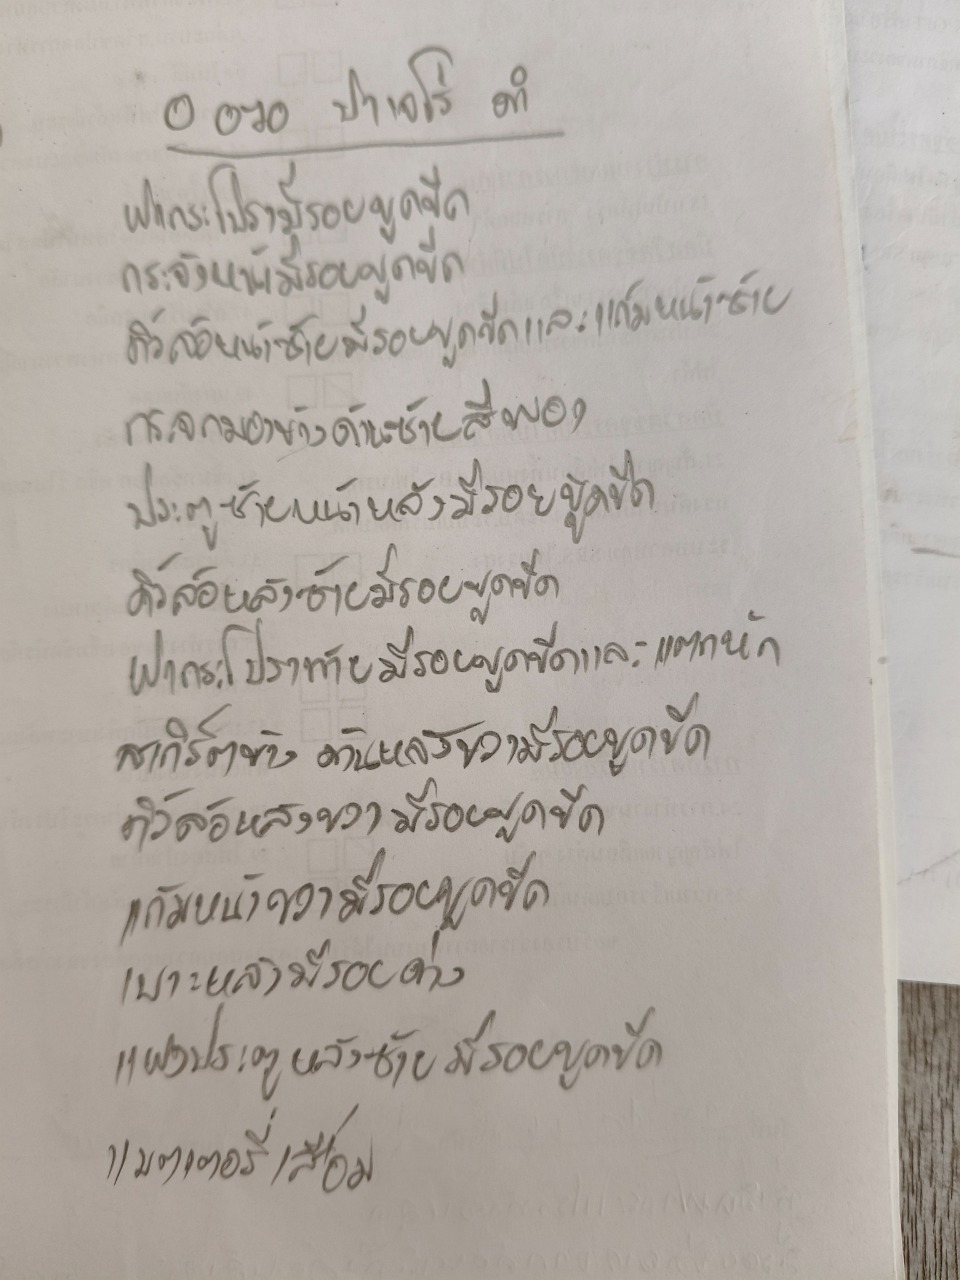 ปาเจโร่ ดำ
ฝากระโปรงมีรอยขูดขีด
กระจังหน้ามีรอยขูดขีด
คิ้วล้อหน้าซ้ายมีรอยขูดขีดและแก้มหน้าซ้าย
กระจกมองข้างด้านซ้ายสีพอง
ประตูซ้ายหน้าหลังมีรอยขูดขีด
คิ้วล้อหลังซ้ายมีรอยขูดขีด
ฝากระโปรงท้ายมีรอยขูดขีดและแตกหัก
สเกิร์ตข้าง ด้านหลังขวามีรอยขูดขีด
คิ้วล้อหลังขวามีรอยขูดขีด
แก้มหน้าขวามีรอยขูดขีด
เบาะหลังมีรอยด่าง
แผงประตูหลังซ้ายมีรอยขูดขีด
แบตเตอรี่เสื่อม